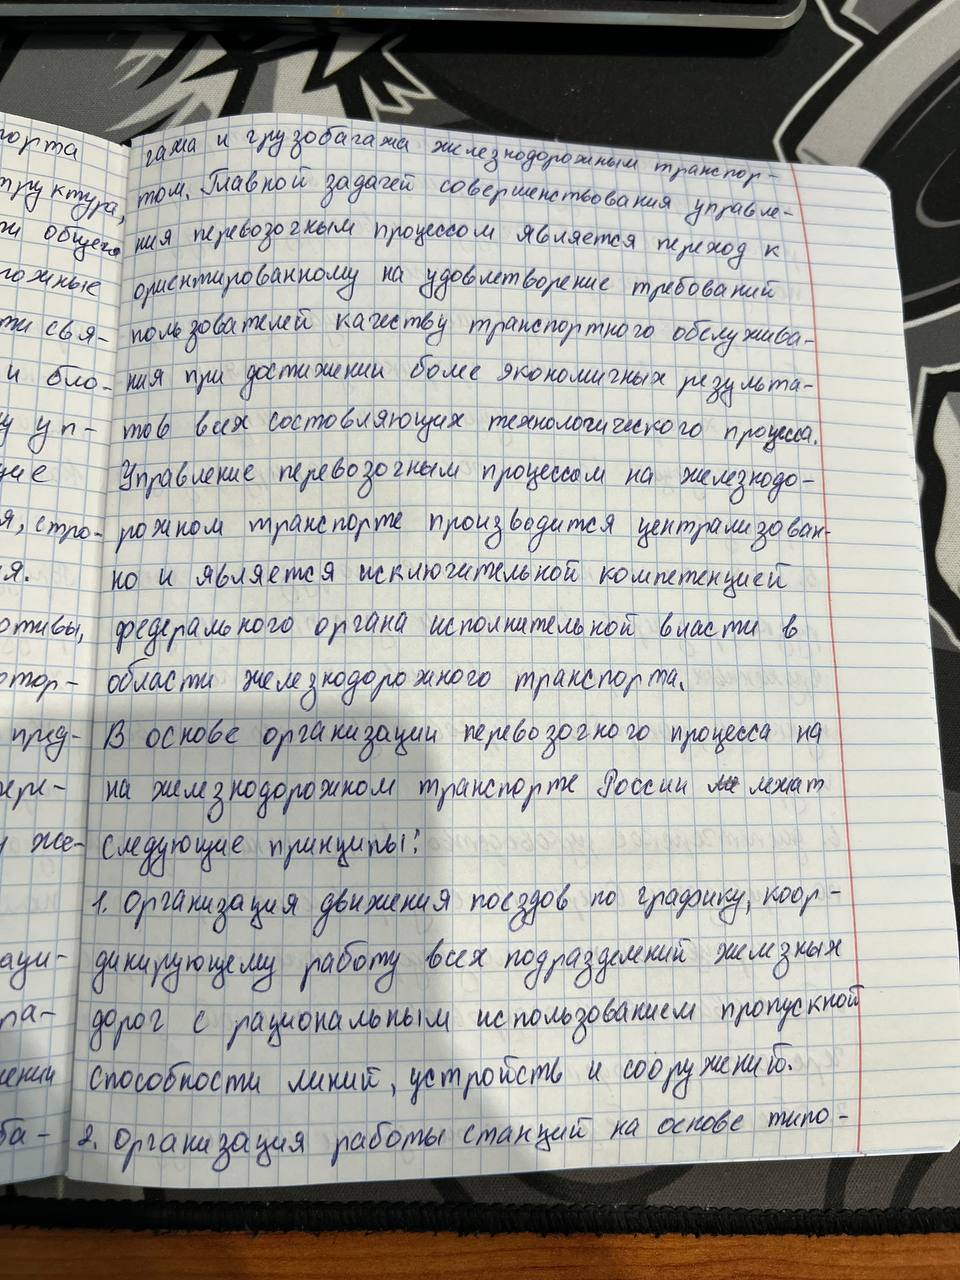 порта
труктура,
ти общего
рожные
ти свя-
и бло-
у уп-
щие
я, стро-
ия.
отивы,
отор-
пред-
же-
аци-
ра-
ба-
гажа и грузобагажа железнодорожным транспор-
том. Главной задачей совершенствования управле-
ния перевозочным процессом является переход к
ориентированному на удовлетворение требований
пользователей качеству транспортного обслужива-
ния при достижении более экономичных результа-
тов всех состовляющих технологического процесса.
Управление перевозочным процессом на железнодо-
рожном транспорте производится централизован-
но и является исключительной компетенцией
федерального органа исполнительной власти в
области железнодорожного транспорта.
В основе организации перевозочного процесса на
на железнодорожном транспорте России лежат
следующие принципы:
1. Организация движения поездов по графику, коор-
динирующему работу всех подразделений железных
дорог с рациональным использованием пропускной
способности линий, устройств и сооружений.
2. Организация работы станций на основе типо-